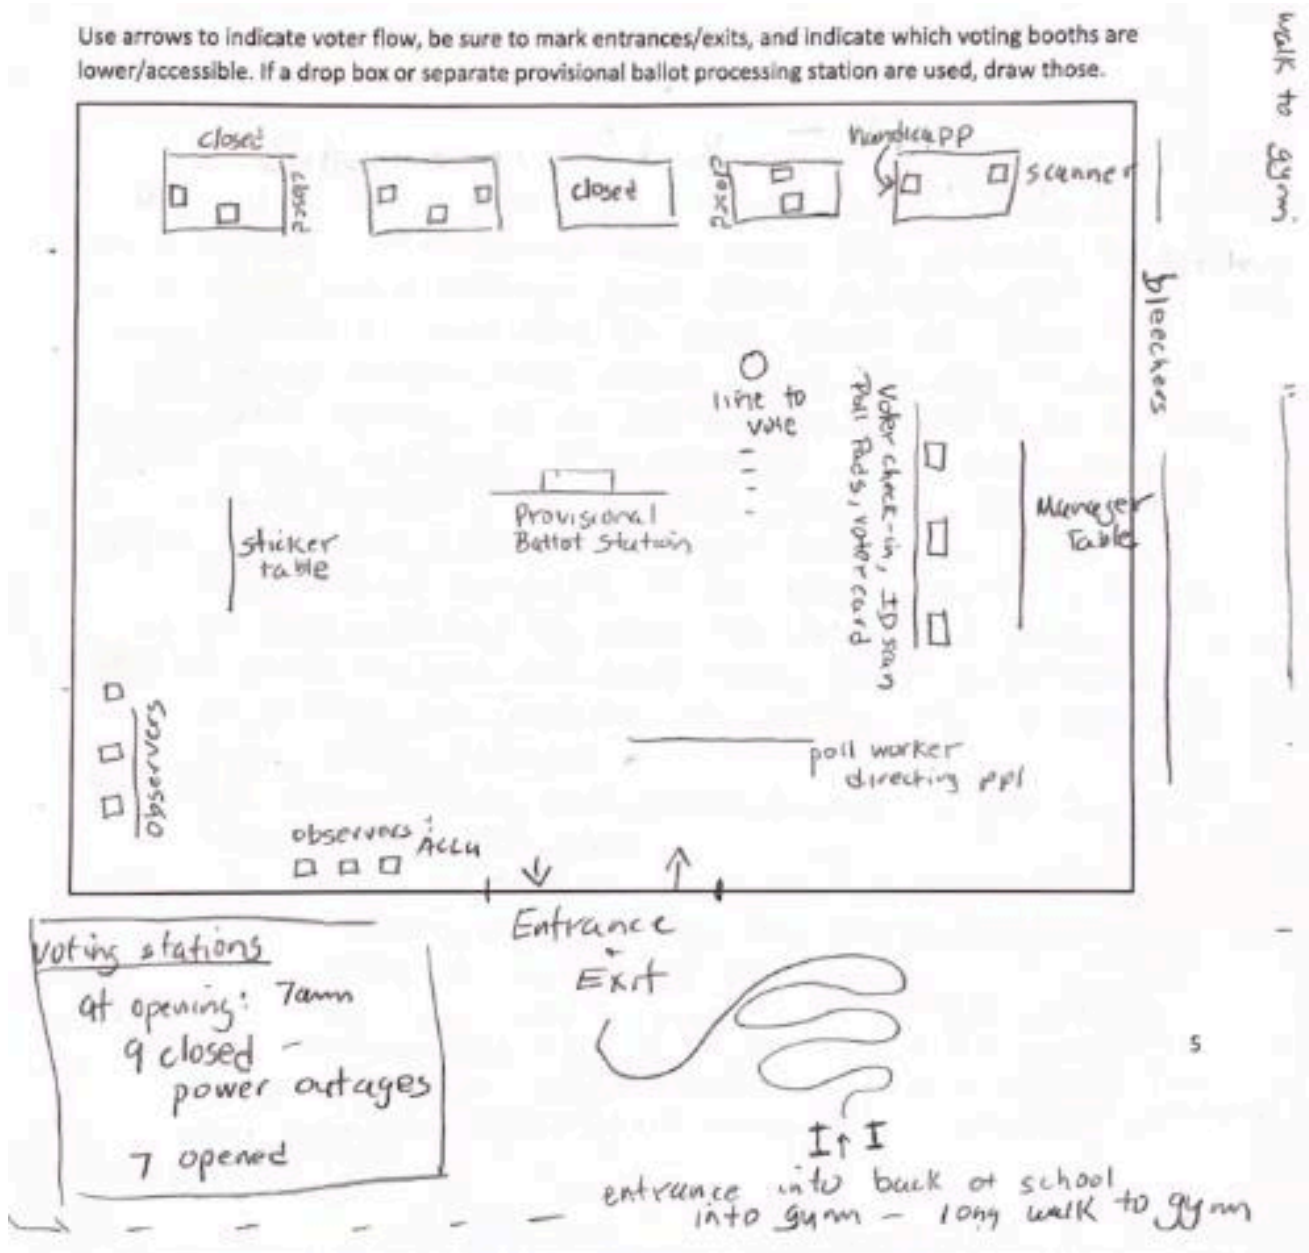 Use arrows to indicate voter flow, be sure to mark entrances/exits, and indicate which voting booths are
lower/accessible. If a drop box or separate provisional ballot processing station are used, draw those.
walk to gym
closed
closed
closed
closed
handicapp
scanner
bleechers
line to
vote
Voter check-in, ID scan
Poll Pads, voter card
Manager
Table
sticker
table
Provisional
Ballot Station
observers
poll worker
directing ppl
observers:
ACLU
Entrance
+
Exit
voting stations
at opening: 7am
9 closed -
power outages
7 opened
5
entrance into back of school
into gym - long walk to gym